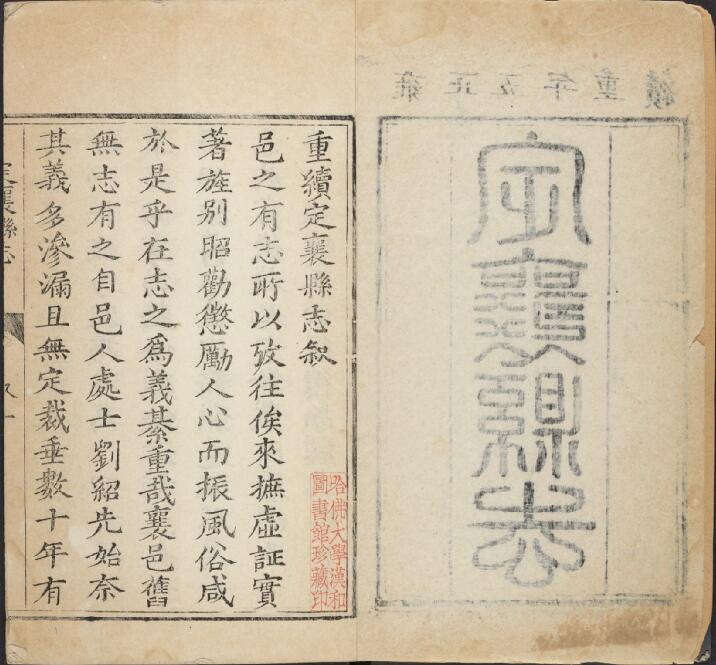 雍正五年重續
定襄縣志
重續定襄縣志叙
邑之有志所以攷往俟來撫虛証實
著旌别昭勸懲勵人心而振風俗咸
於是乎在志之爲義綦重哉襄邑舊
無志有之自邑人處士劉紹先始奈
其義多滲漏且無定裁垂數十年有
定襄縣志
哈佛大學漢和
圖書館珍藏印